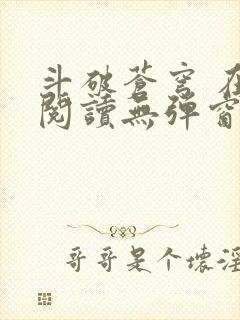 斗破苍穹 在
閱讀無彈窗
哥哥是个壞淫